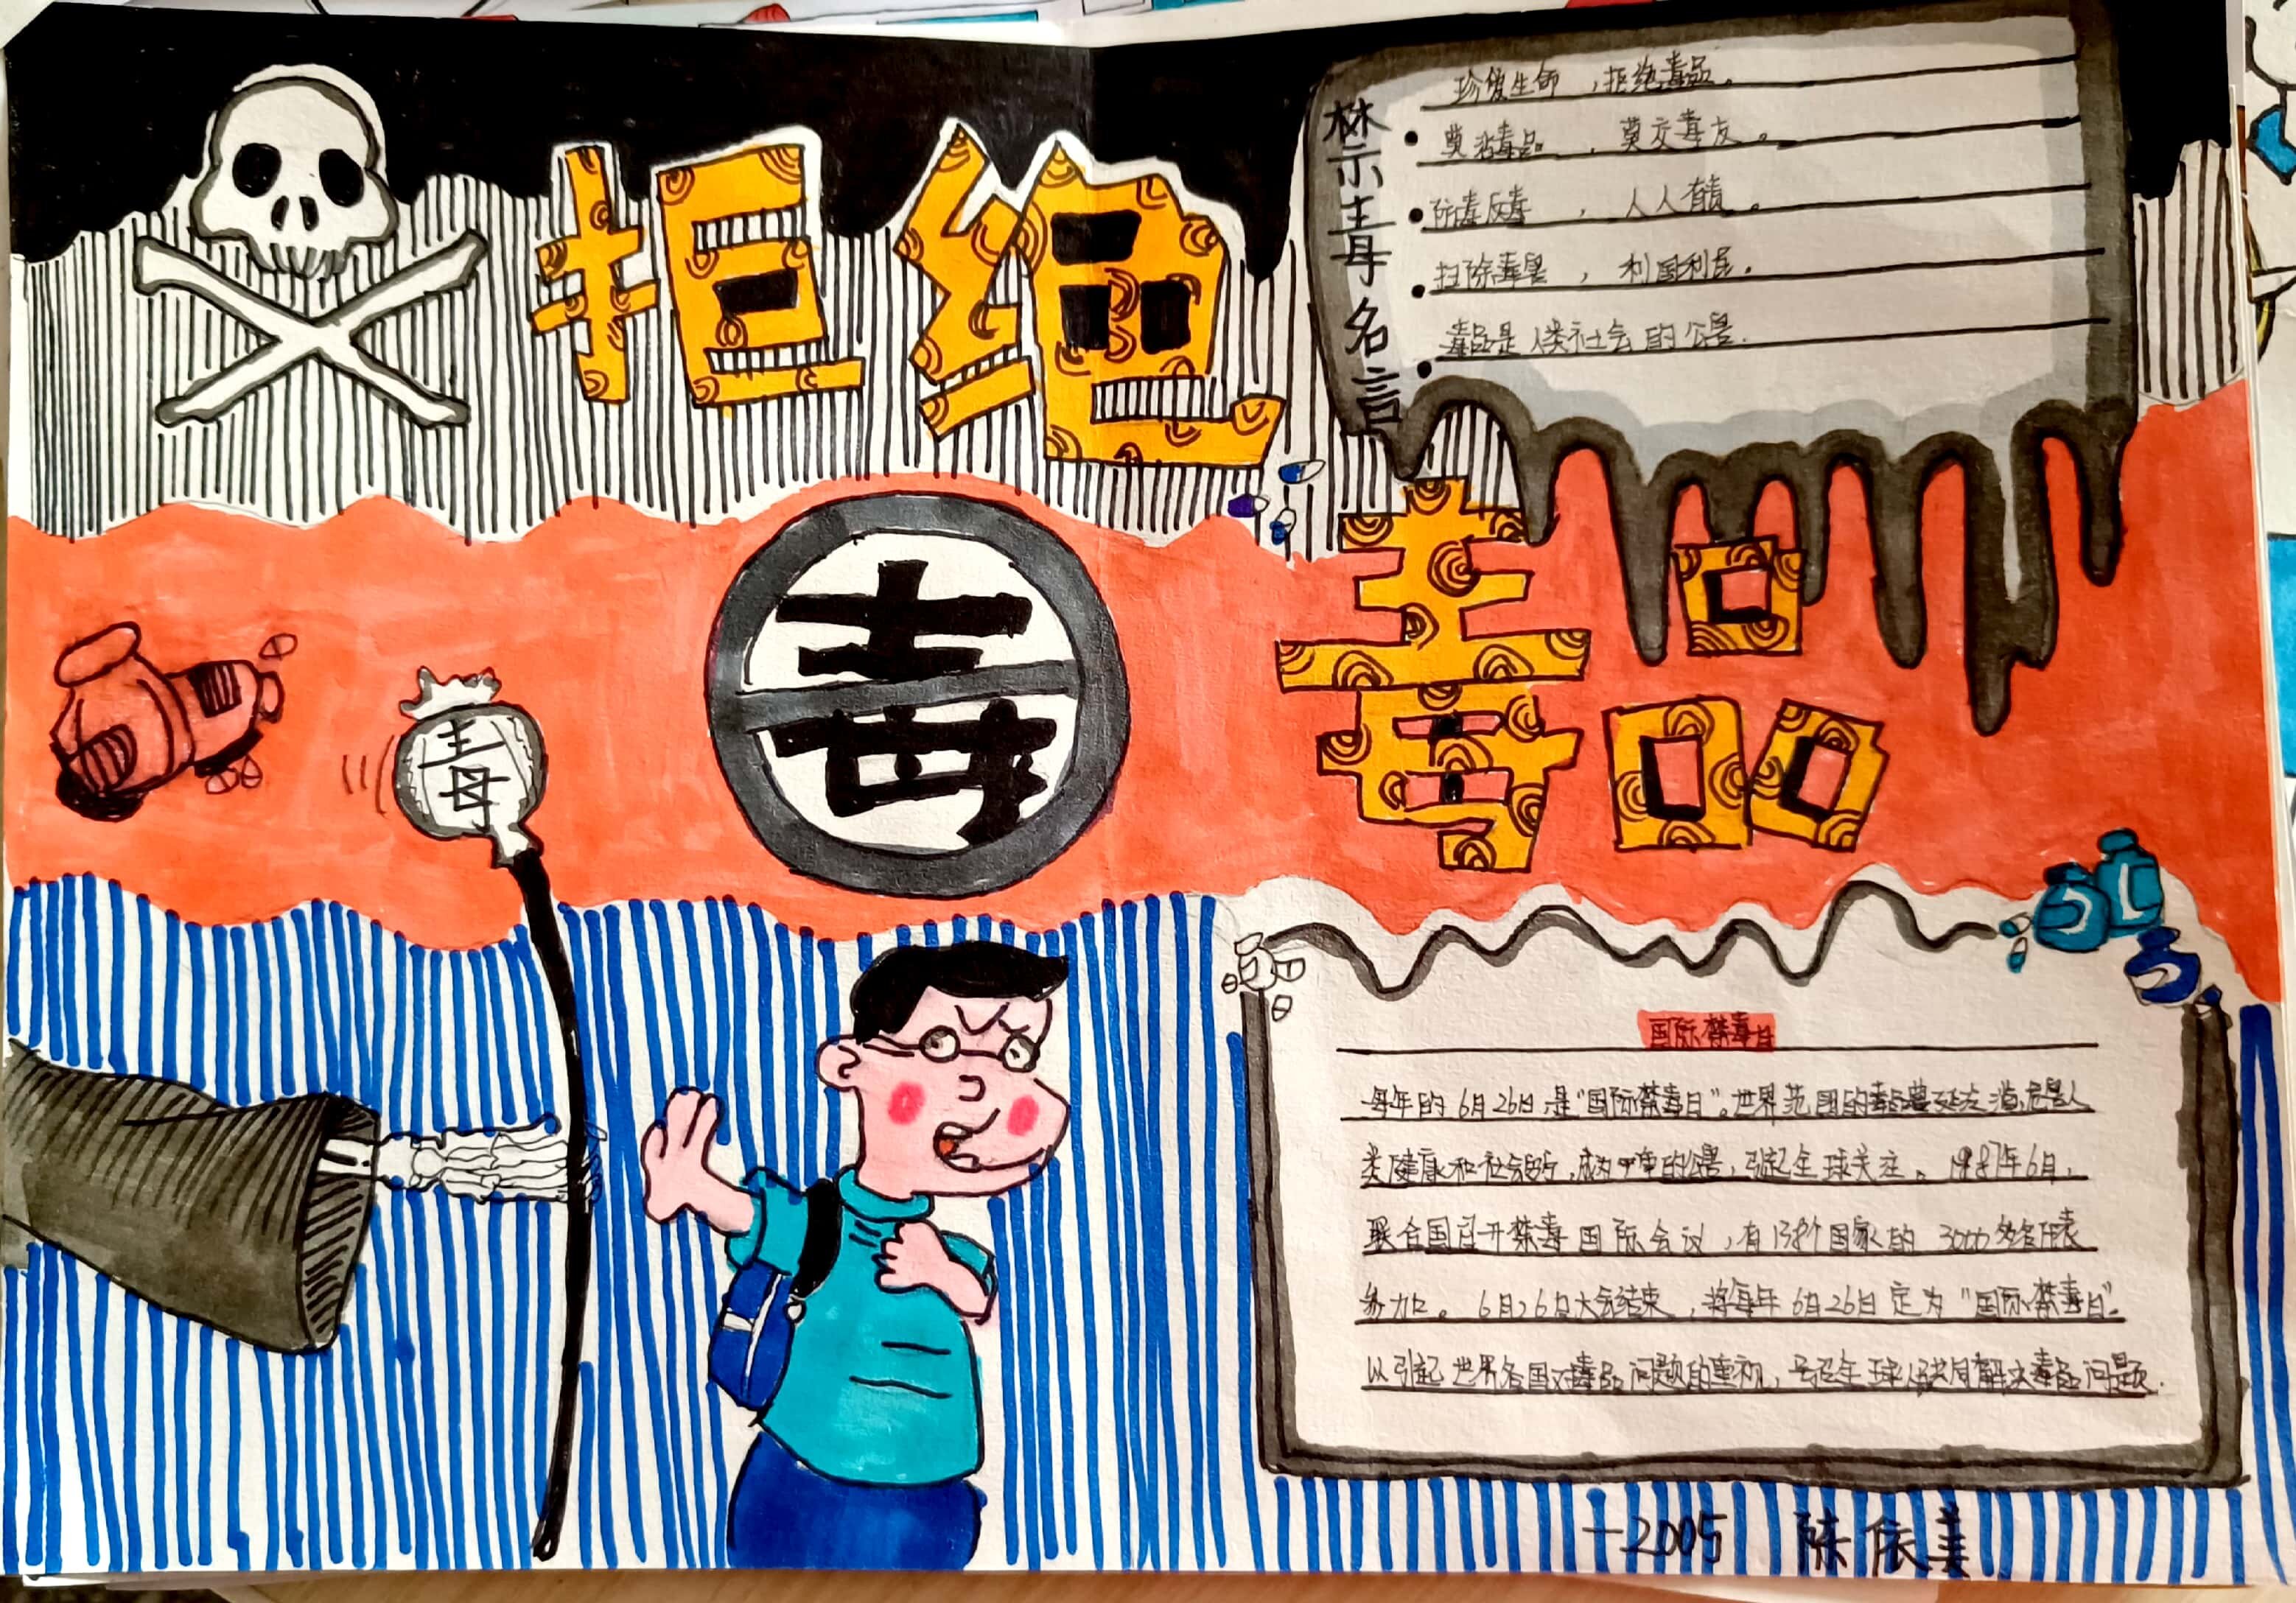 拒绝
毒品
禁毒名言
珍爱生命，拒绝毒品。
莫沾毒品，莫交毒友。
防毒反毒，人人有责。
扫除毒害，利国利民。
毒品是人类社会的公害.
毒
毒
国际禁毒日
每年的6月26日是"国际禁毒日"。世界范围的毒品蔓延泛滥,危害人
类健康和社会,成为严重的公害,引起全球关注。1987年6月,
联合国召开禁毒国际会议，有138个国家的3000多名代表
参加。6月26日大会结束,将每年6月26日定为"国际禁毒日"。
以引起世界各国对毒品问题的重视,号召全球人民共同解决毒品问题.
一2005 陈依姜